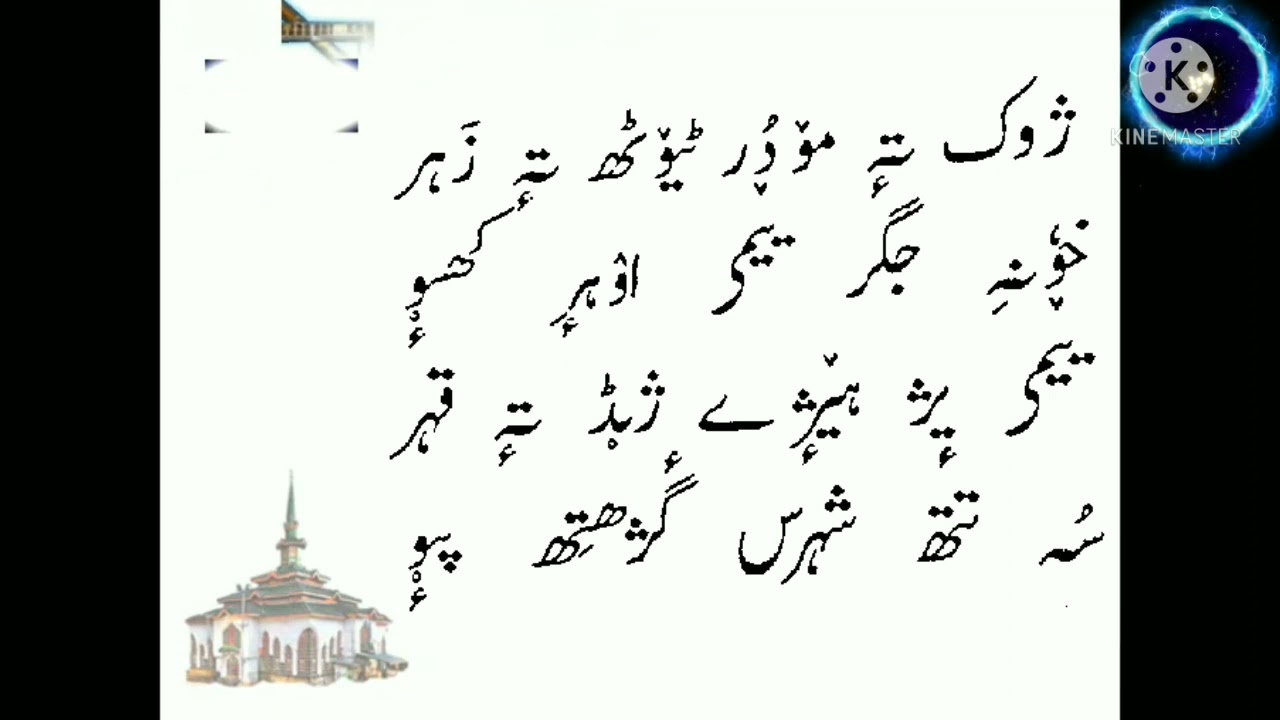 ژوک تہٕ موٚدُر ٹیوٚٹھ تہٕ زَہر
خوٚنہِ جگر ییمی اوٚہرٕ کھیوٚ
ییمی پرٛژھ ہیژٕے ژٕہڈ تہٕ قہر
سُہ تتھ شہرس گژھتِھ پیوٚ
KINEMASTER